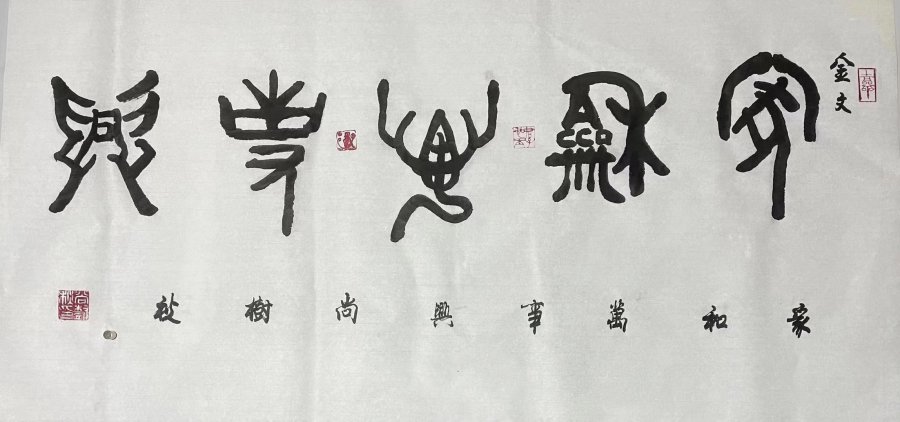 金文
家龢萬事興
家和萬事興尚樹秋